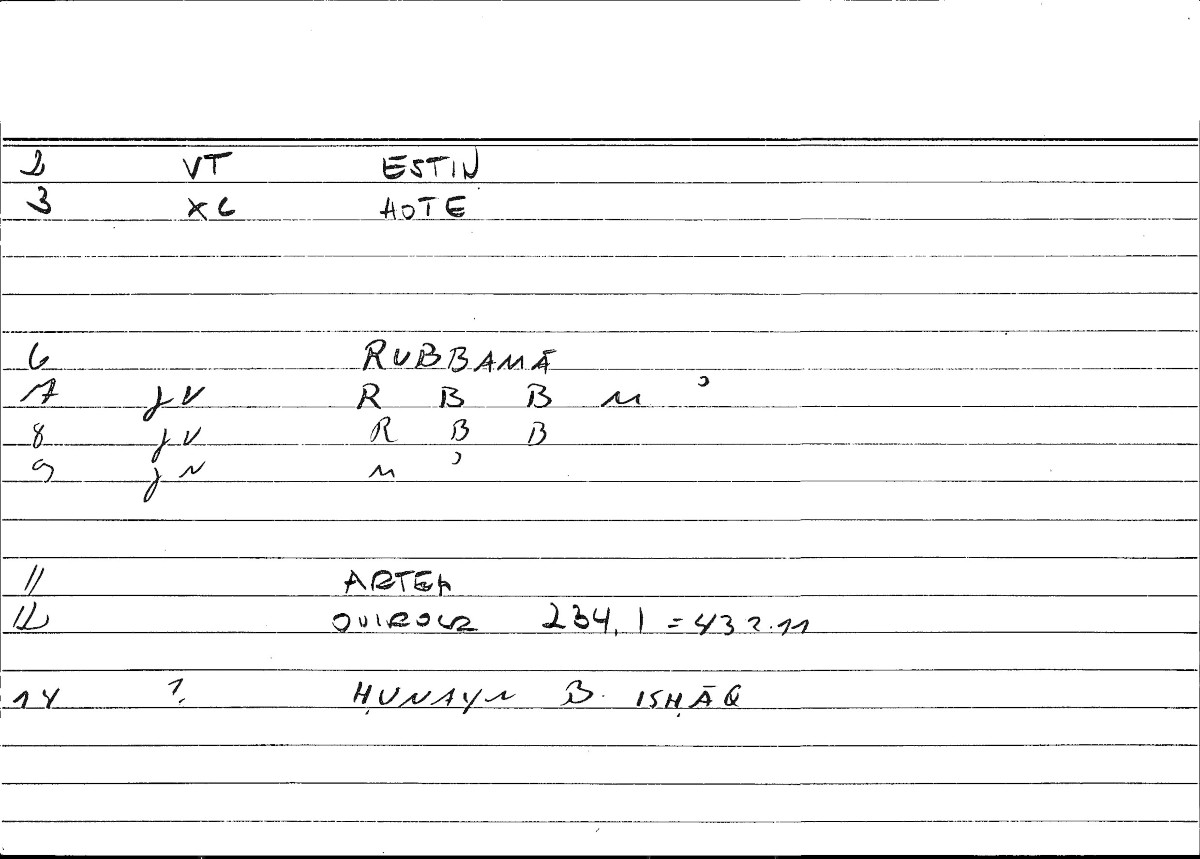 2 VT ESTIN
3 XC HOTE
6 RUBBAMĀ
7 JV R B B M ʾ
8 JV R B B
9 JN M ʾ
11 ARTER
12 234,1 = 432.11
14 1. ḤUNAYN B. ISḤĀQ